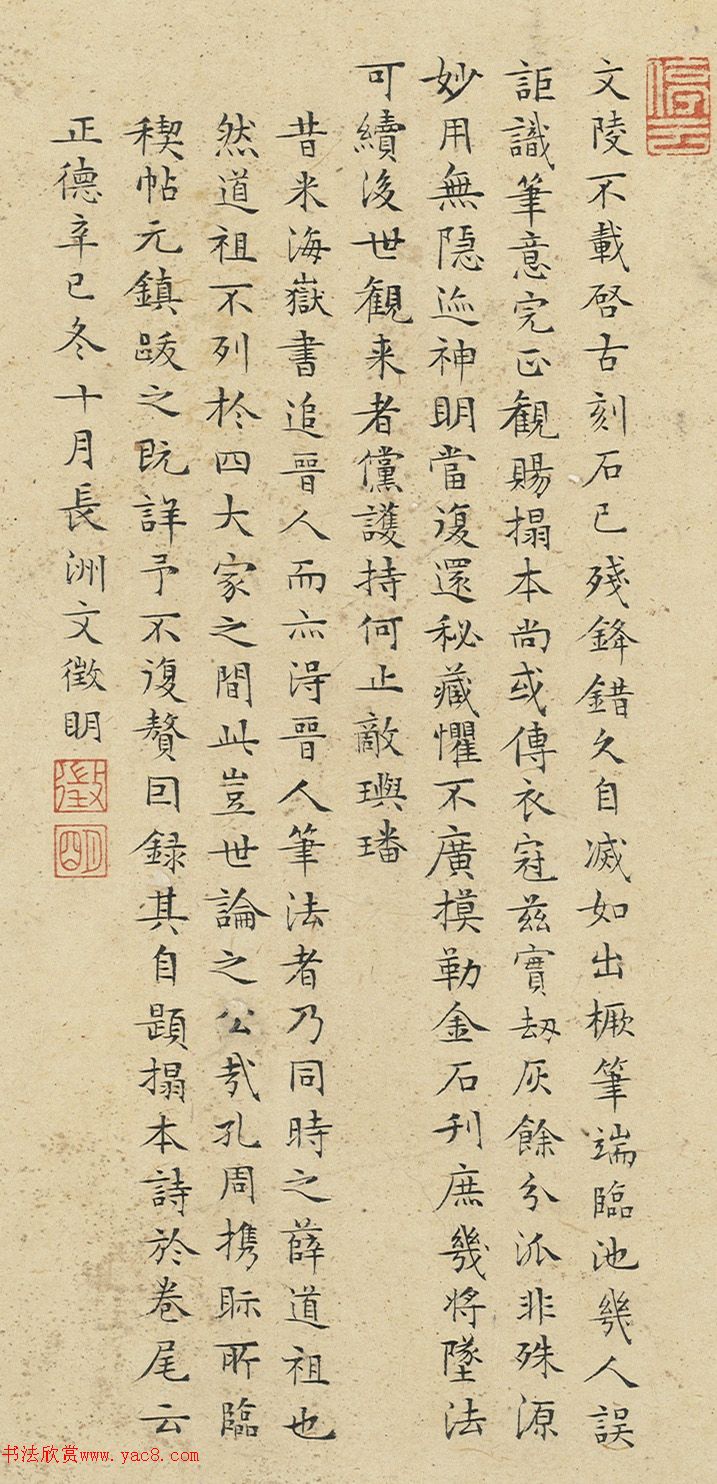 停雲
文陵不載啓古刻石已殘鋒錯久自滅如出橛筆端臨池幾人誤
詎識筆意完正觀賜搨本尚或傳衣冠茲實劫灰餘分派非殊源
妙用無隱迹神明當復還秘藏懼不廣摸勒金石刊庶幾將墜法
可續後世観来者儻護持何止敵璵璠
昔米海嶽書追晉人而亦得晉人筆法者乃同時之薛道祖也
然道祖不列於四大家之間此豈世論之公哉孔周携眎所臨
稧帖元鎮跋之既詳予不復贅因録其自題搨本詩於卷尾云
正德辛巳冬十月長洲文徵明
徵
明
书法欣赏www.yac8.com